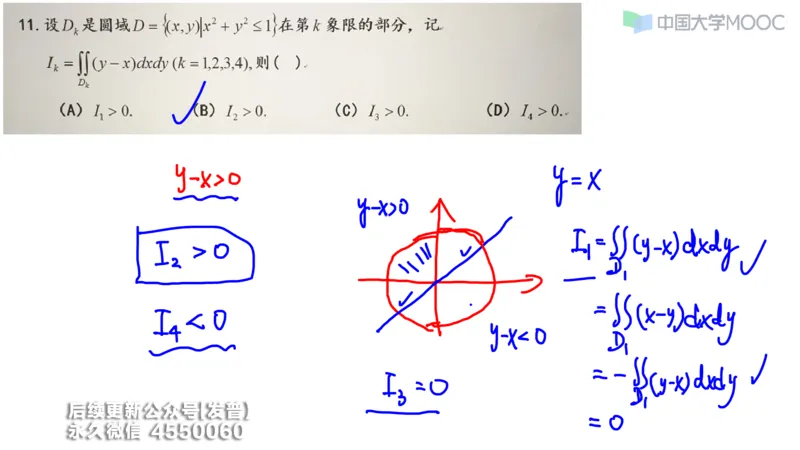 中国大学MOOC
11.设D_k是圆域D={(x,y)|x²+y²≤1}在第k象限的部分，记
I_k=∬_{D_k}(y−x)dxdy(k=1,2,3,4),则( ).
(A) I₁>0. (B) I₂>0. (C) I₃>0. (D) I₄>0.
y-x>0
I₂>0
I₄<0
y-x>0
y-x<0
I₃=0
y=x
I₁=∬_{D₁}(y-x)dxdy
=∬_{D₁}(x-y)dxdy
=-∬_{D₁}(y-x)dxdy
=0
后续更新公众号[发普]
永久微信 4550060